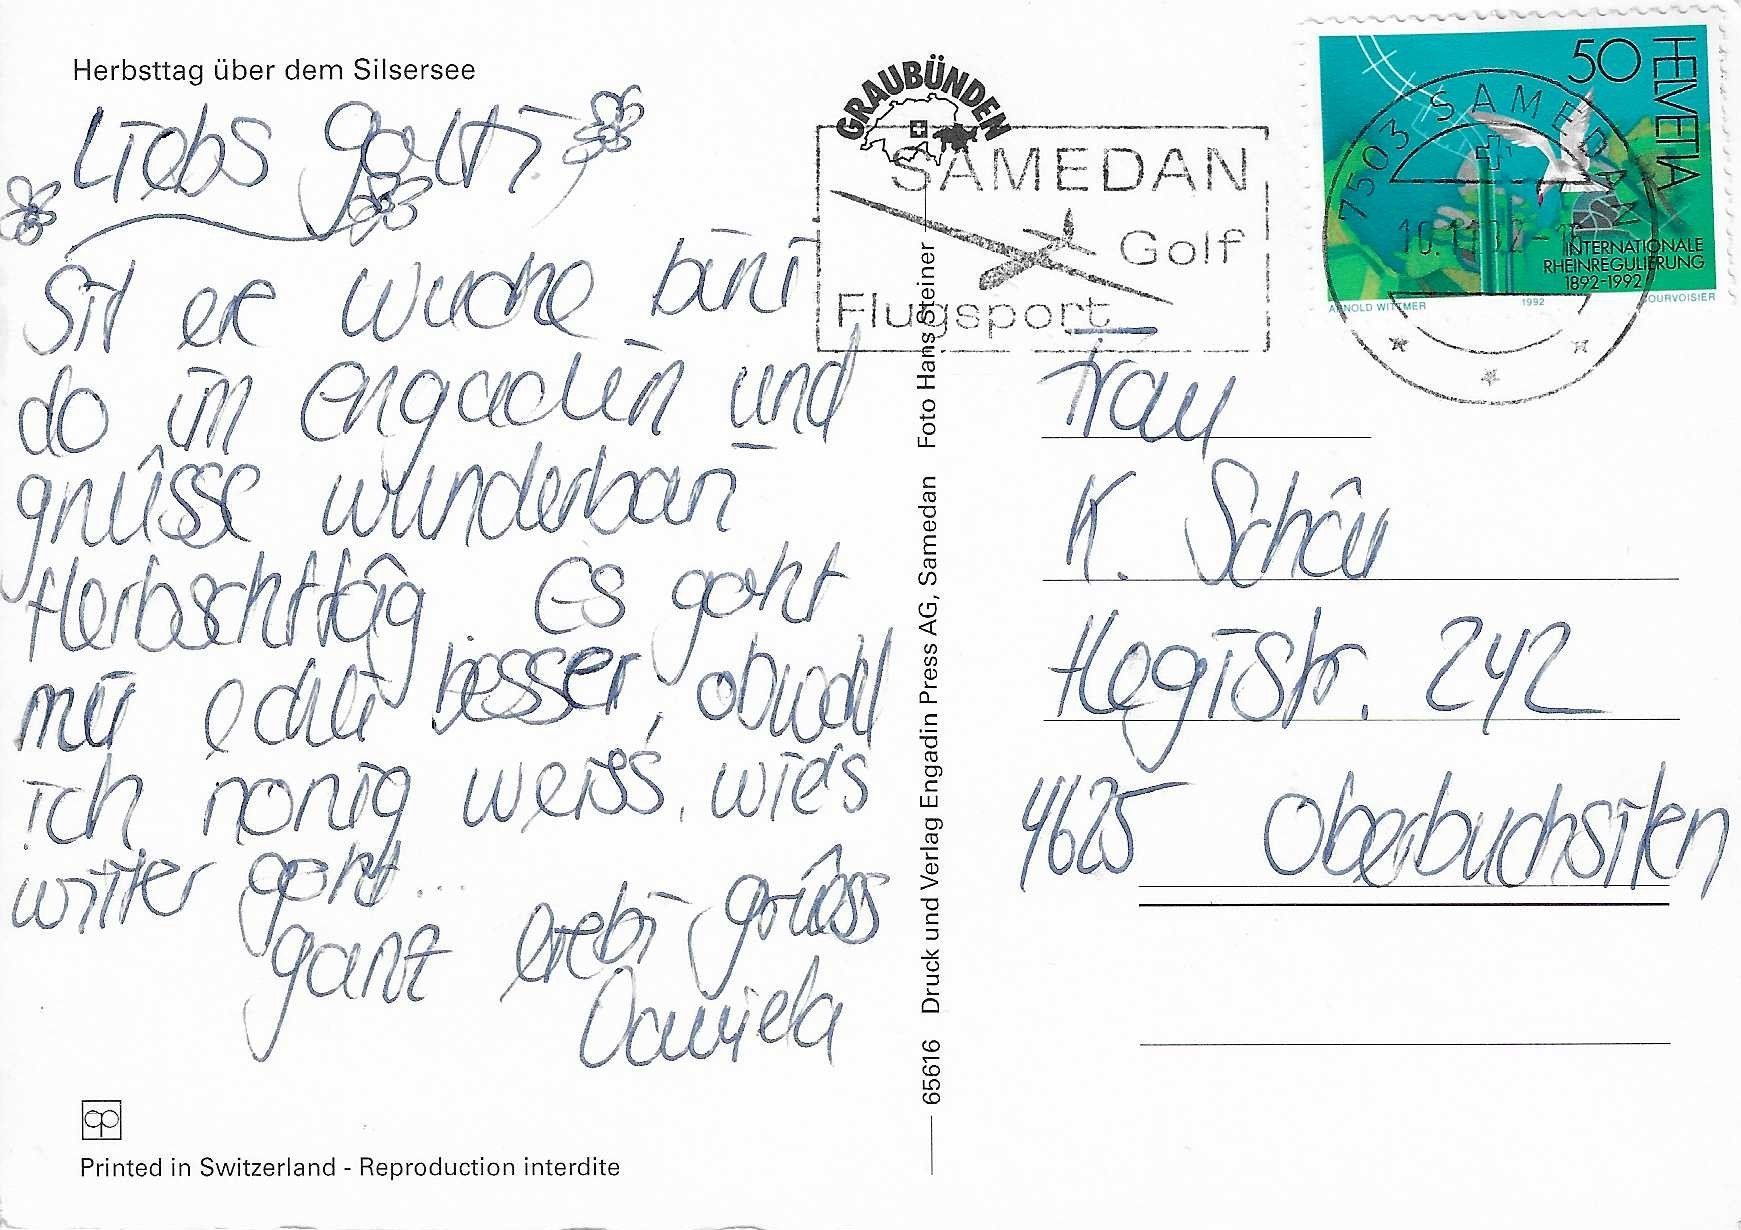 Herbsttag über dem Silsersee
Liebs Gotti
Sit er Wuche bini
do im Engadin und
gnüsse wunderbari
Herbschttäg. Es goht
mir echli besser, obwohl
ich nonig weiss, wie's
witter goht...
ganz liebi Grüess
Daniela
Printed in Switzerland - Reproduction interdite
65616 Druck und Verlag Engadin Press AG, Samedan Foto Hans Steiner
GRAUBÜNDEN
SAMEDAN
Golf
Flugsport
50
HELVETIA
INTERNATIONALE
RHEINREGULIERUNG
1892-1992
ARNOLD WITTMER 1992 COURVOISIER
7503 SAMEDAN
Frau
K.
Hegistr. 242
4625 Oberbuchsiten